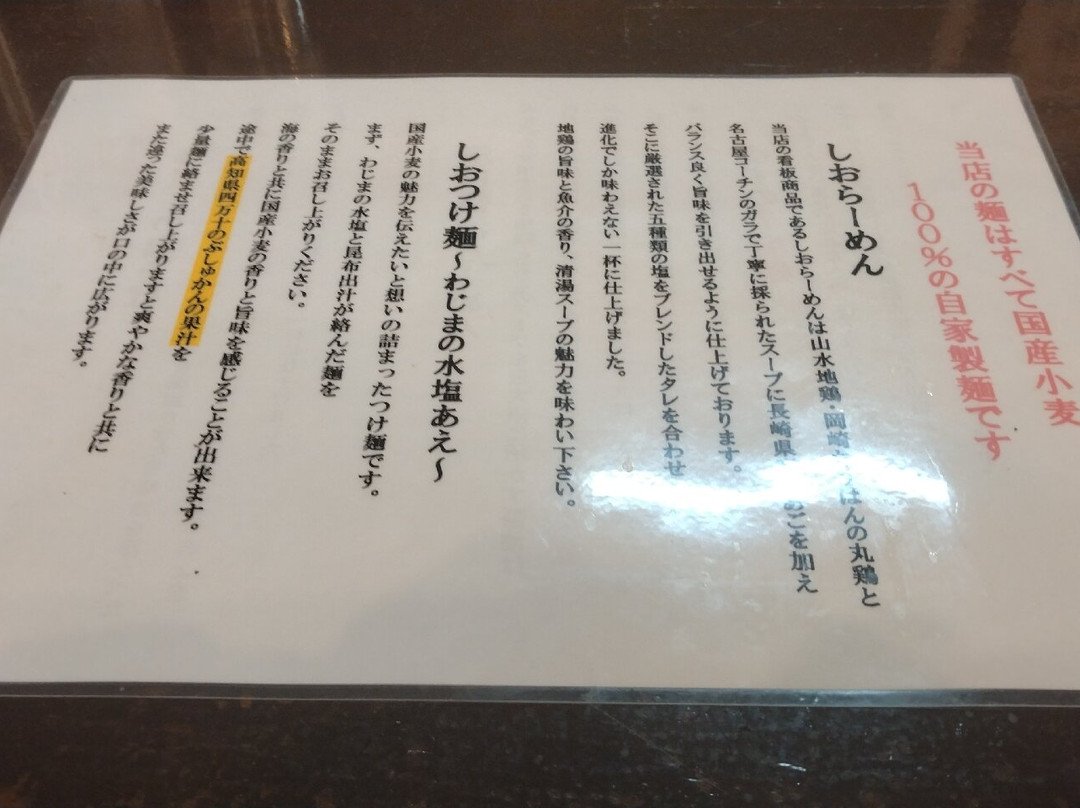 当店の麺はすべて国産小麦
100%の自家製麺です
しおらーめん
当店の看板商品であるしおらーめんは山水地鶏・岡崎 はんの丸鶏と
名古屋コーチンのガラで丁寧に採られたスープに長崎県 あごを加え
バランス良く旨味を引き出せるように仕上げております。
そこに厳選された五種類の塩をブレンドしたタレを合わせ
進化でしか味わえない一杯に仕上げました。
地鶏の旨味と魚介の香り、清湯スープの魅力を味わい下さい。
しおつけ麺~わじまの水塩あえ~
国産小麦の魅力を伝えたいと想いの詰まったつけ麺です。
まず、わじまの水塩と昆布出汁が絡んだ麺を
そのままお召し上がりください。
海の香りと共に国産小麦の香りと旨味を感じることが出来ます。
途中で高知県四万十のぶしゅかんの果汁を
少量麺に絡ませ召し上がりますと爽やかな香りと共に
また違った美味しさが口の中に広がります。